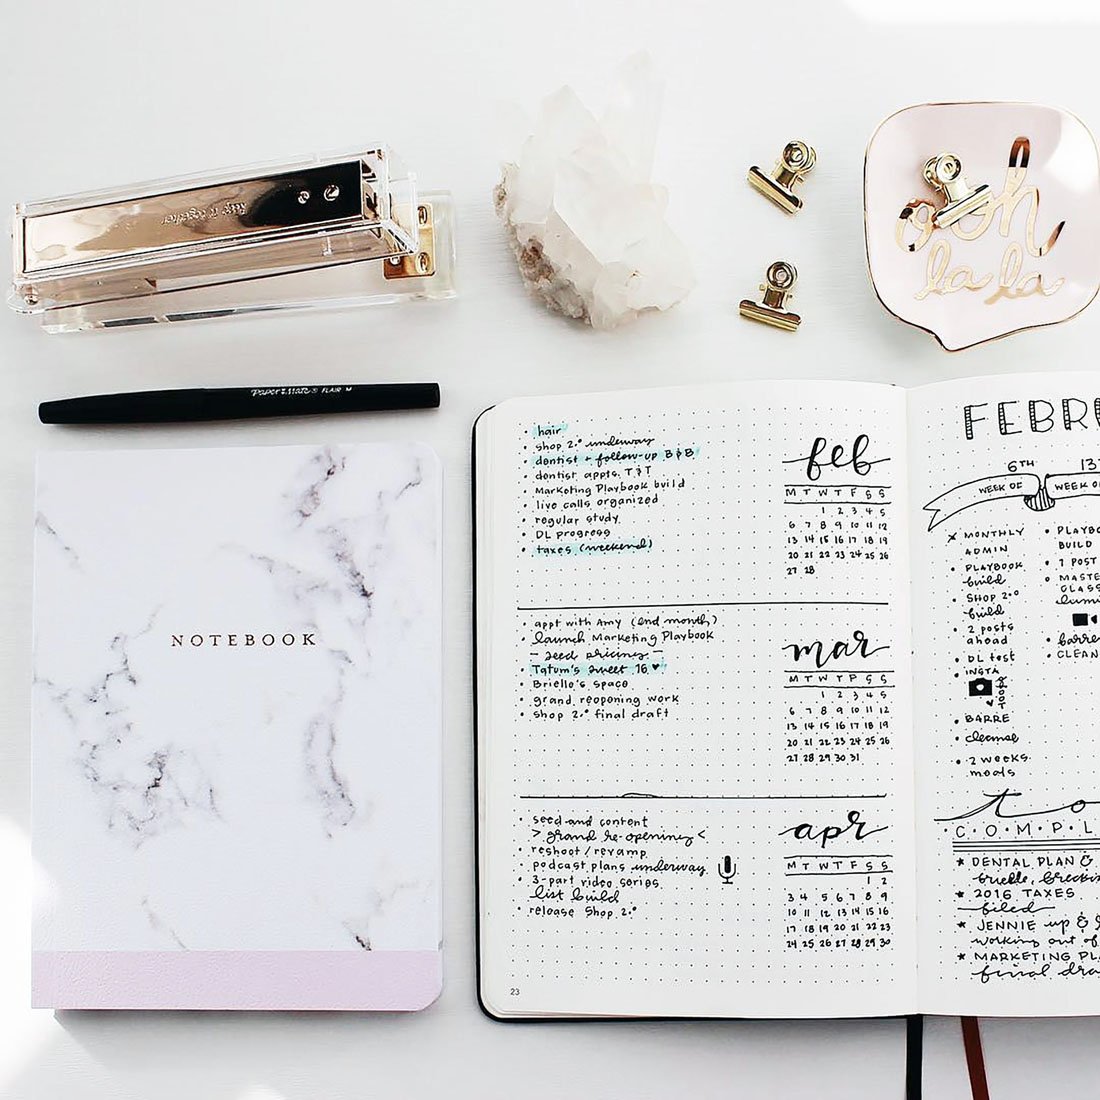 keep it together
ooh
la la
Paper Mate® FLAIR M
NOTEBOOK
• hair
• shop 2.0 underway
• dentist + follow-up B & B
• dentist appts. T & T
• Marketing Playbook build
• live calls organized
• regular study
• DL progress
• taxes (weekend)
feb
M T W T F S S
1 2 3 4 5
6 7 8 9 10 11 12
13 14 15 16 17 18 19
20 21 22 23 24 25 26
27 28
• appt with Amy (end month)
• launch Marketing Playbook
- seed pricing -
• Tatum's sweet 16 ♥
• Brielle's space
• grand reopening work
• shop 2.0 final draft
mar
M T W T F S S
1 2 3 4 5
6 7 8 9 10 11 12
13 14 15 16 17 18 19
20 21 22 23 24 25 26
27 28 29 30 31
• seed and content
> grand re-opening <
• reshoot/revamp
• podcast plans underway
• 3-part video series
list build
• release Shop 2.0
apr
M T W T F S S
1 2
3 4 5 6 7 8 9
10 11 12 13 14 15 16
17 18 19 20 21 22 23
24 25 26 27 28 29 30
23
FEBR
6TH
WEEK OF
13
WEEK OF
× MONTHLY
ADMIN
• PLAYBOOK
build
• SHOP 2.0
build
• 2 posts
ahead
• DL test
• INSTA
SHOOT
• BARRE
• cleanse
• 2 weeks
meals
• PLAYBO
BUILD
• 1 POST
• MASTE
CLASS
• barre
• CLEAN
to
COMPL
★ DENTAL PLAN &
brielle, breckin
★ 2016 TAXES
filed
★ JENNIE up &
working out of
★ MARKETING PLA
final dra